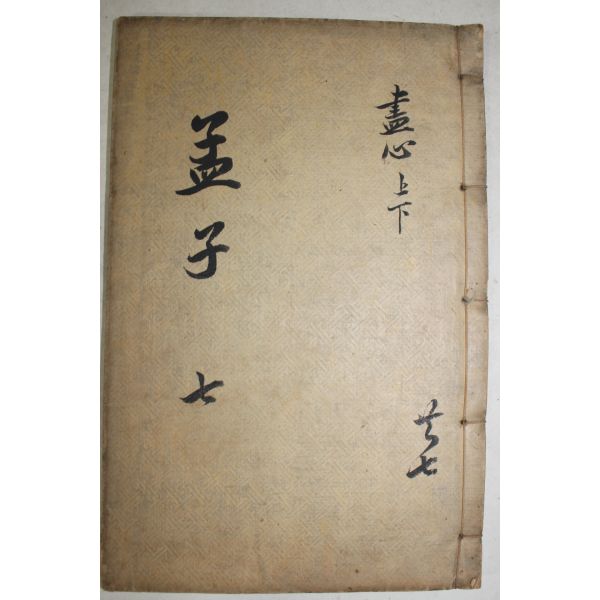 盡心 上下
共七
孟子 七